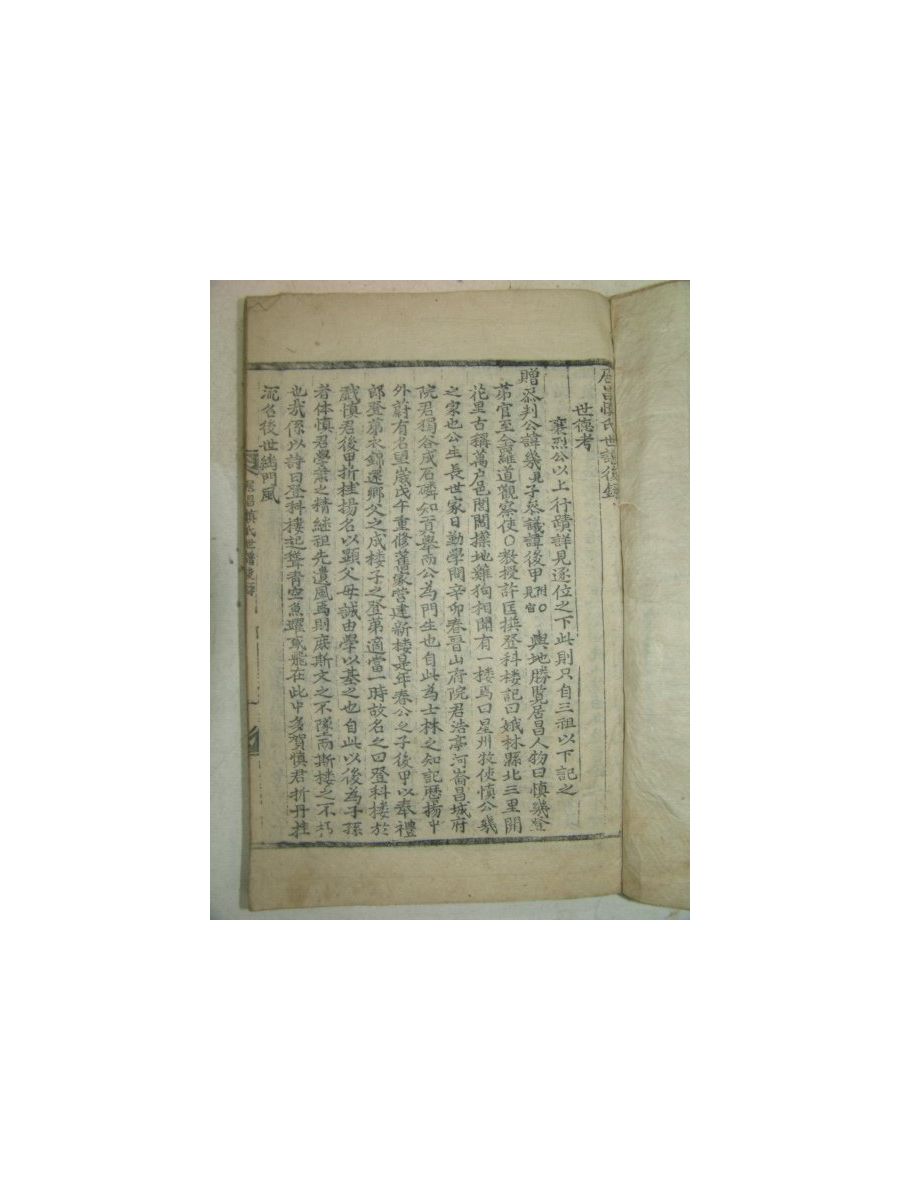 居昌愼氏世譜後錄
世德考
襄烈公以上行蹟詳見逐位之下此則只自三祖以下記之
贈叅判公諱幾見子叅議諱後甲附見官○輿地勝覽居昌人物曰愼幾登
第官至全羅道觀察使○敎授許匡撰登科楼記曰娥林縣北三里開
花里古稱萬户邑閭閻撲地雞狗相聞有一楼焉曰星州牧使愼公幾
之家也公生長世家日勤學問辛卯春晋山府院君浩亭河崙昌城府
院君獨谷成石磷知貢擧而公為門生也自此為士林之知記歷揚中
外蔚有名望歲戊午重修舊家營建新楼是年春公之子後甲以奉禮
郎登第衣錦還鄉父之成楼子之登第適當一時故名之曰登科楼於
戱愼君後甲折桂揚名以顯父母誠由學以基之也自此以後為子孫
者体愼君學業之精継祖先遺風焉則庶斯文之不墜而斯楼之不朽
也哉係以詩曰登科楼起聳青空魚躍或龍在此中多賀愼君折丹桂
流名後世継門風
居昌愼氏世譜